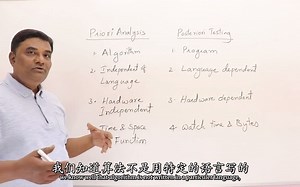 Priori Analysis
1. Algorithm
2. Independent of Language
3. Hardware Independent
Time & Space Function
Posteriori Testing
1. Program
2. Language dependent
3. Hardware dependent
4. Watch time & Bytes
我们知道算法不是用特定的语言写的
we know well that algorithm are not written in a particular language,